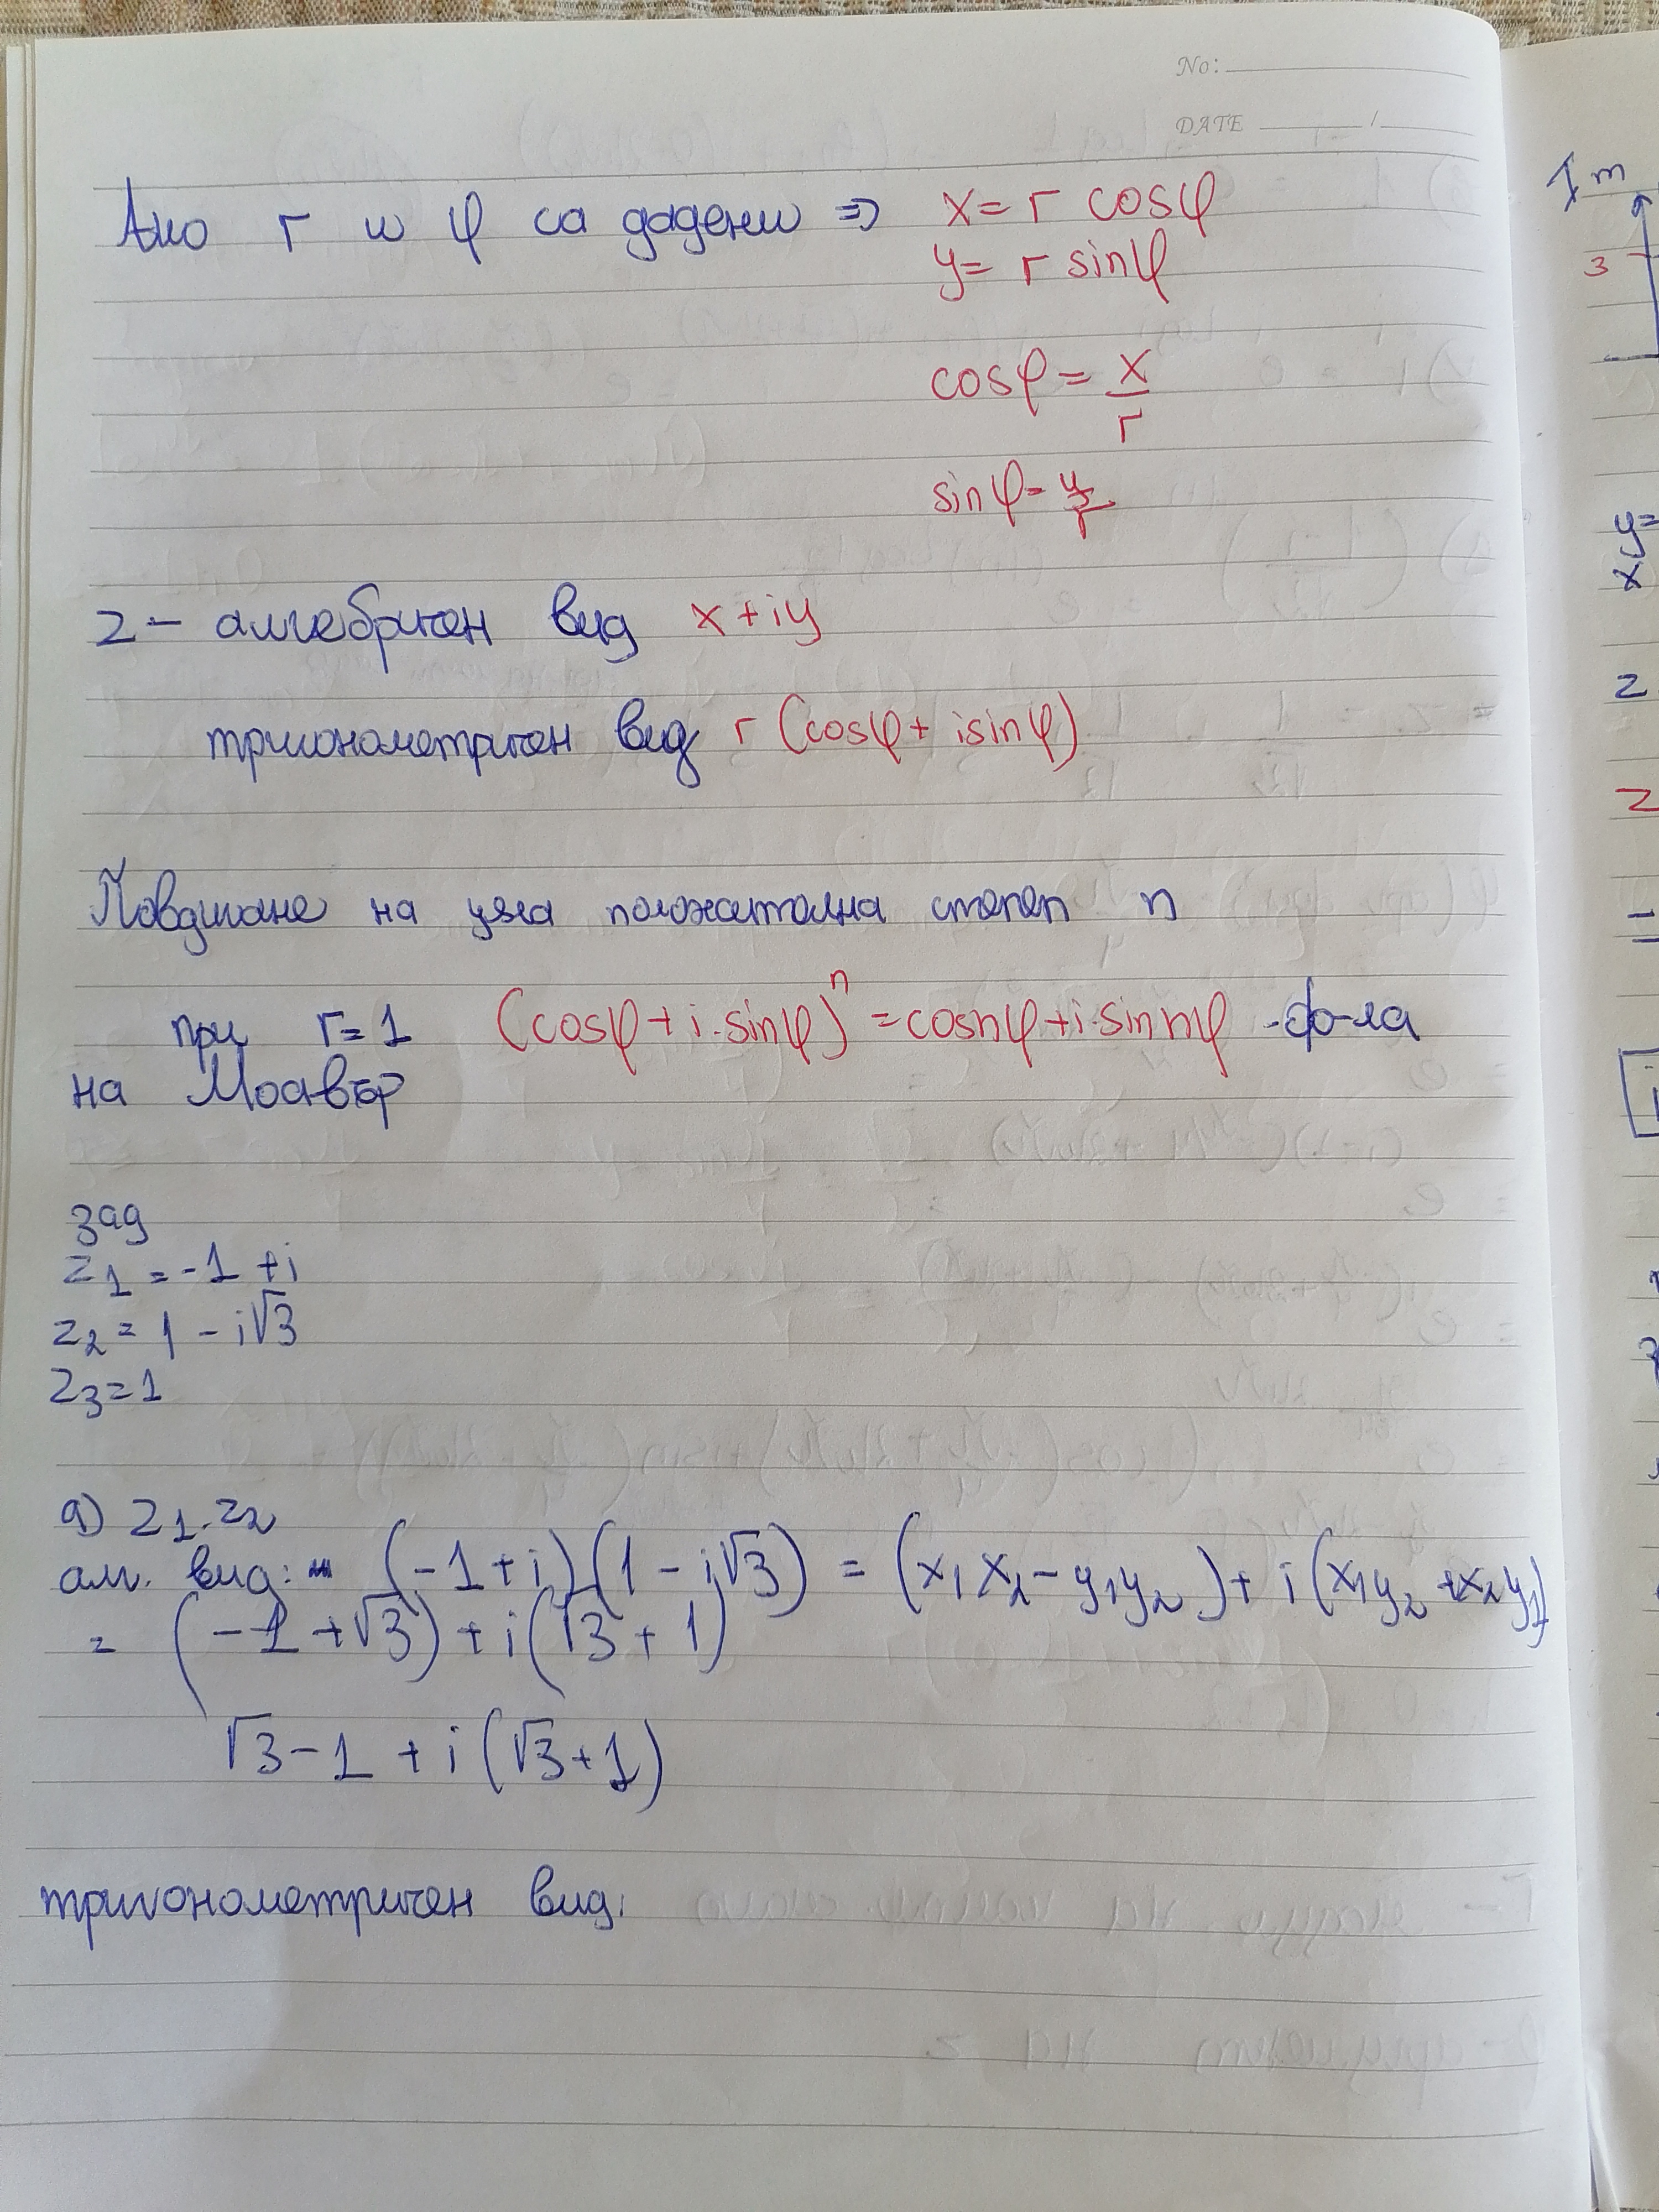 No:
DATE /
Ако r и φ са дадени => x = r cosφ
y = r sinφ
cosφ = x/r
sinφ = y/r
z - алгебричен вид x + iy
тригонометричен вид r (cosφ + isinφ)
Повдигане на цяла положителна степен n
при r = 1 (cosφ + i.sinφ)ⁿ = cosnφ + i.sin nφ - ф-ла
на Моавър
зад
z₁ = -1 + i
z₂ = 1 - i√3
z₃ = 1
а) z₁.z₂
алг. вид: (-1 + i)(1 - i√3) = (x₁x₂ - y₁y₂) + i (x₁y₂ + x₂y₁)
= (-1 + √3) + i (√3 + 1)
√3 - 1 + i (√3 + 1)
тригонометричен вид:
Im
3
y=
x
z
z